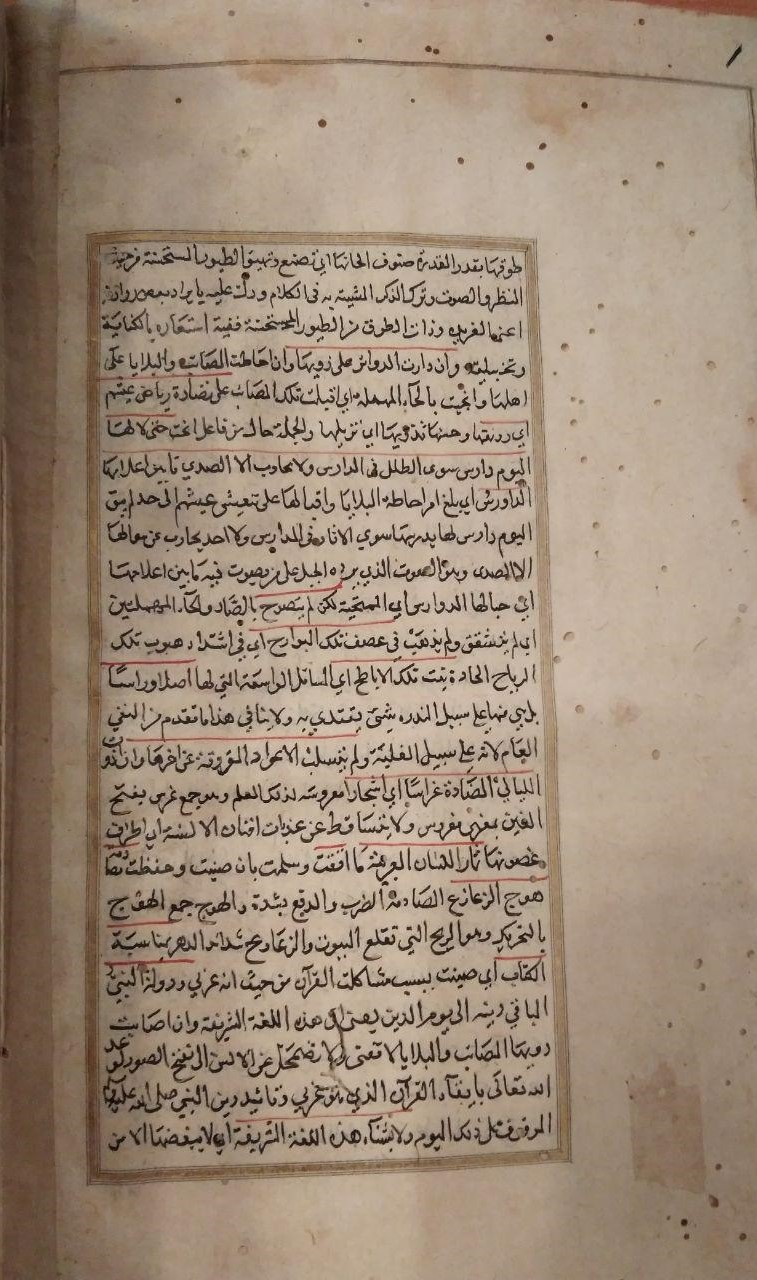 طوقها بقدر القدرة صنوف الحانها اي تصنع وتهيئ الطيور المستحسنة
المنظر والصوت وترك الذكر المشبه به في الكلام ودلت عليه بايراد
وذات الطوق من الطيور المستحسنة ففيه استعارة بالكناية
وتخييلية وان دارت الدوائر على ذويها وان احاطت المصائب والبلايا على
اهلها وانحت بالحاء المهملة اي اقبلت تلك المصائب على نضارة رياض عيشهم
اي رونقها وحسنها تذويها اي تزيلها والجملة حال من فاعل انحت حتى لا لها
اليوم دارس سوى الطلل في المدارس ولا مجاوب الا الصدى ما بين اعلامها
الدوارس اي بلغ امر احاطة البلايا واقبالها على تعيش عيشهم الى حد لم يبق
اليوم دارس لها يدريها سوى الاثار في المدارس ولا احد يجاوب عن سوالها
الا الصدى وهو الصوت الذي يرده الجبل على من صوت فيه ما بين اعلامها
اي جبالها الدوارس اي الممتحية لكن لم يتصوح بالصاد والحاء المهملتين
اي لم يتشقق ولم يذهب في عصف تلك البوارح اي في اشتداد هبوب تلك
الرياح الحادة نبت تلك الاباطح اي المسائل الواسعة التي لها اصلا وراسا
بل بقي منها على سبيل الندره شيء يقتدي به ولا ينافي هذا ما تقدم من النفي
العام لانه على سبيل الغلبة ولم يتسلب الاعواد المورقة عن اخرها وان اذوت
الليالي المضادة غراسا اي اشجارا مغروسه لذلك العلم وهو جمع غرس بفتح
الغين بمعنى مغروس ولا تتساقط عن عذبات افنان الالسنة اي اطراف
غصونها ثمار اللسان العربي ما اتقت وسلمت بان صينت وحفظت مصادمة
هوج الزعازع الصادمة الضرب والدفع بشدة والهوج جمع الهوج
بالتحريك وهو الريح التي تقلع البيوت والزعازع شدائد الدهر بمناسبة
الكتاب اي صينت بسبب مشاكلت القرآن من حيث انه عربي ودولة النبي
الباقي دينه الى يوم الدين يعني ان هذه اللغة الشريفة وان اصابت
ذويها المصائب والبلايا لا تفنى ولا تضمحل عن الالسن الى نفخ الصور لوعد
الله تعالى بابقآء القرآن الذي هو عربي وتائيد دين النبي صلى الله عليه
ذلك اليوم ولا يشناء هذه اللغة الشريفة اي لا يبغضها الا من